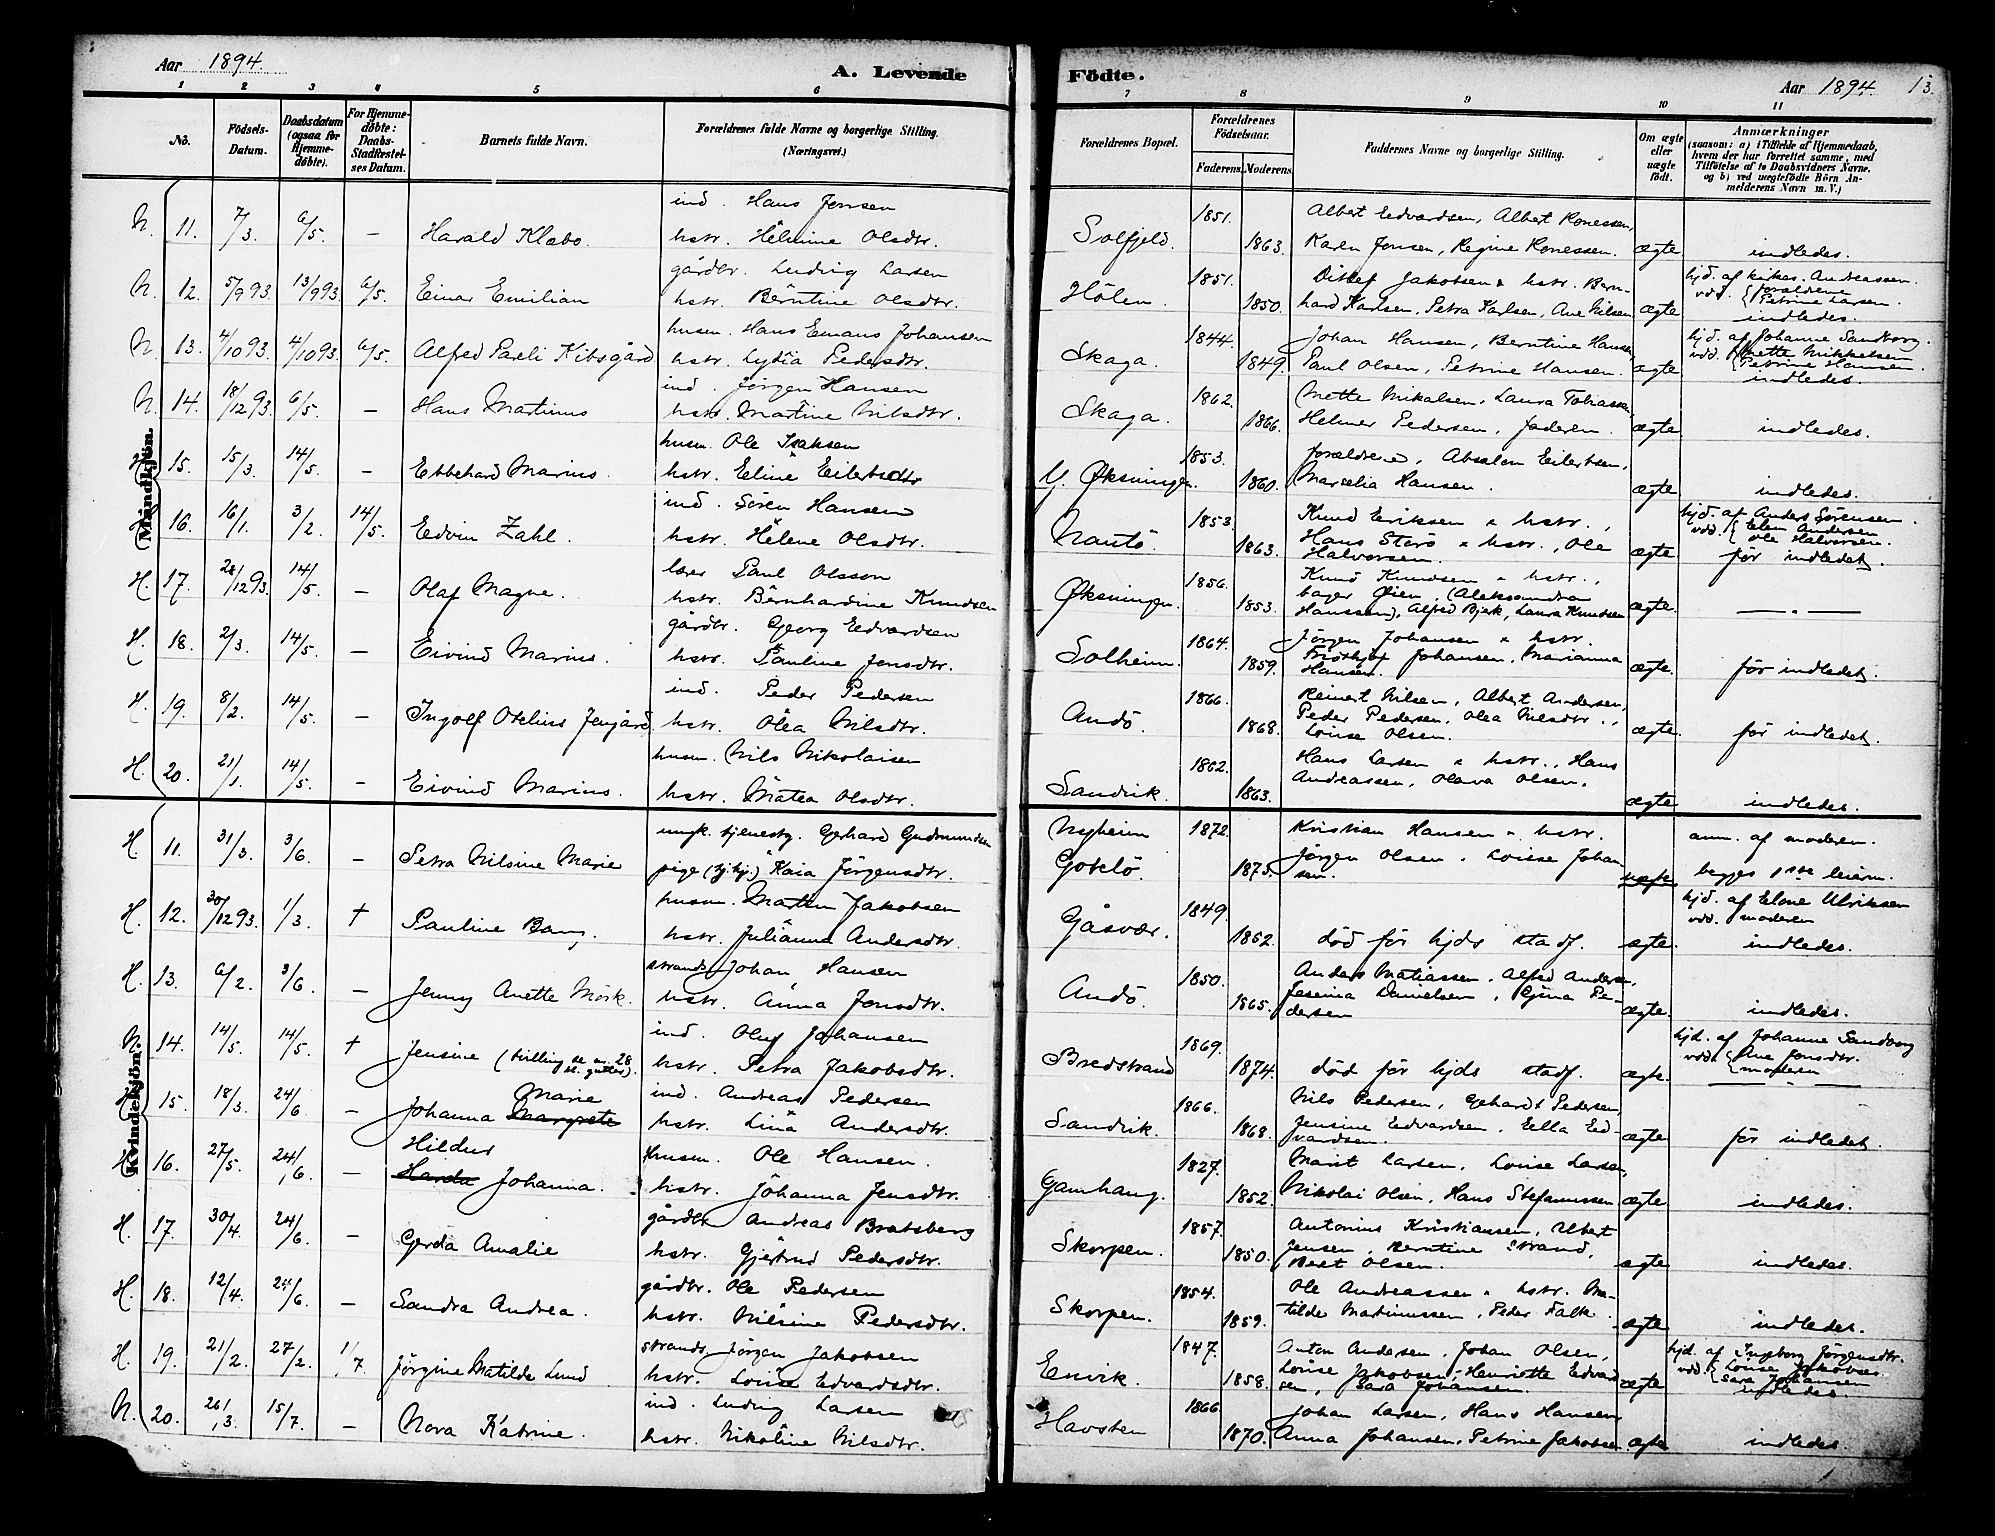 Aar 1894. A. Levende Födte. Aar 1894. 13.
1 2 3 4 5 6 7 8 9 10 11
No. Födsels-Datum. Daabsdatum (ogsaa for Hjemmedöbte). For Hjemmedöbte: Daabs-Stadfæstelses Datum. Barnets fulde Navn. Forældrenes fulde Navne og borgerlige Stilling. (Næringsvei.) Forældrenes Bopæl. Forældrenes Födselsaar. Faderens. Moderens. Faddernes Navne og borgerlige Stilling. Om ægte eller uægte födt. Anmærkninger (saasom: a) i Tilfælde af Hjemmedaab, hvem der har forrettet samme, med Tilföielse af to Daabsvidners Navne. og b) ved uægtefödte Börn Anmelderens Navn m. V.)
Mandkjön.
N. 11. 7/3. 6/5. – Harald Klæbo. ind. Hans Jensen hstr. Helmine Olsdtr. Solfjeld. 1851. 1863. Albert Edvardsen, Albert Ronessen, Karen Jensen, Regine Ronessen. ægte indledes.
N. 12. 5/9 93. 13/9 93. 6/5. Einar Emilian gårdbr. Ludvig Larsen hstr. Berntine Olsdtr. Hölen. 1851. 1850. Ditlef Jakobsen & hstr. Bernhard Karlsen, Petra Karlsen, Ane Nilsen ægte hjd. af kirkes. Andreassen. vdd. { forældrene Petrine Larsen. indledes.
N. 13. 4/10 93. 4/10 93. 6/5. Alfred Pareli Kibsgård husm. Hans Emaus Johansen hstr. Lydia Pedersdtr. Skaga. 1844. 1849. Johan Hansen, Berntine Hansen, Paul Olsen, Petrine Hansen. ægte hjd. af Johanne Sandborg. vdd. { Mette Mikkelsen Petrine Hansen. indledes.
N. 14. 18/12 93. 6/5. – Hans Martinus ind. Jörgen Hansen hstr. Martine Nilsdtr. Skaga. 1862. 1866. Mette Mikalsen, Laura Tobiassen, Helmer Pedersen, faderen. ægte indledes.
H. 15. 15/3. 14/5. – Ebbehard Marius. husm. Ole Isaksen hstr. Eline Eilertsdtr Y. Øksningen. 1853. 1860. forældrene, Absalon Eilertsen, Marcelia Hansen. ægte indledes.
H. 16. 16/1. 3/2. 14/5. Edvin Zahl. ind. Sören Hansen hstr. Helene Olsdtr. Nautö. 1853. 1863. Knud Eriksen & hstr., Hans Starö & hstr., Ole Halvorsen. ægte hjd. af Anders Sörensen. vdd. { Elen Andersen Ole Halvorsen. för indledet.
H. 17. 28/12 93. 14/5. – Olaf Magne. lærer Paul Olsson hstr. Bernhardine Knudsen Øksningen. 1856. 1853. Knud Knudsen & hstr., bager Öien, (Aleksandra Hanssen), Alfred Bjerk, Laura Knudsen ægte – " –
H. 18. 2/3. 14/5. – Eivind Marius. gårdbr. Georg Edvardsen hstr. Pauline Jensdtr. Solheim. 1864. 1859. Jörgen Johansen & hstr. Fridthjof Johansen, Marianna Hansen. ægte för indledet.
H. 19. 8/2. 14/5. – Ingolf Otelius Jengård ind. Peder Pedersen hstr. Olea Nilsdtr. Andö. 1866. 1868. Reinert Nilsen, Albert Andersen, Peder Pedersen, Olea Nilsdtr., Louise Olsen. ægte för indledet.
H. 20. 21/1. 14/5. – Eivind Marius. husm. Nils Nikolaisen hstr. Matea Olsdtr. Sandvik. 1862. 1863. Hans Larsen & hstr., Hans Andreassen, Olava Olsen. ægte indledes.
Kvindekjön.
H. 11. 31/3. 3/6. – Petra Nilsine Marie ungk. tjenestg. Gerhard Gudmundsen pige (tj. hj.) Kaia Jörgensdtr. Nyheim Gotelö. 1872. 1875. Kristian Hansen & hstr. Jörgen Olsen, Louise Johansen. uægte. anm. af moderen. begges 1ste leierm.
H. 12. 30/12 93. 1/3. † Pauline Bang. husm. Martin Jakobsen hstr. Julianna Andersdtr. Gåsvær. 1849. 1852. död för hjds stadf. ægte. hjd. af Elene Ulriksen vdd. moderen indledes.
H. 13. 6/2. 3/6. – Jenny Anette Mörk. strands. Johan Hansen hstr. Anna Jensdtr. Andö. 1850. 1865. Anders Matiassen, Alfred Andersen, Jesenia Danielsen, Gjina Pedersen ægte indledes.
N. 14. 14/5. 14/5. † Jensine (tvilling se nr. 28 bl. gutter). ind. Oluf Johansen hstr. Petra Jakobsdtr. Bredstrand 1869. 1874. död för hjds stadf. ægte. hjd. af Johanne Sandborg vdd. { Ane Jensdtr. moderen – " –
H. 15. 18/3. 24/6. – Johanna Margrete Marie ind. Andreas Pedersen hstr. Lina Andersdtr. Sandvik. 1866. 1868. Nils Pedersen, Gehardt Pedersen, Jensine Edvardsen, Ella Edvardsen. ægte för indledet.
H. 16. 27/5. 24/6. – Hildur Harda Johanna. husm. Ole Hansen. hstr. Johanna Jensdtr. Gamhaug. 1827. 1852. Marit Larsen, Louise Larsen, Nikolai Olsen, Hans Stefanussen ægte indledes.
H. 17. 30/4. 24/6. – Gerda Amalie gårdbr. Andreas Bratsberg hstr. Gjertrud Pedersdtr. Skorpen. 1857. 1850. Antonius Kristiansen, Albert Jensen, Berntine Strand, Berit Olsen. ægte indledes.
H. 18. 12/4. 24/6. – Sandra Andrea. gårdbr. Ole Pedersen hstr. Nilsine Pedersdtr. Skorpen. 1854. 1859. Ole Andreassen & hstr. Matilde Martinussen, Peder Falk. ægte indledes.
H. 19. 21/2. 27/2. 1/7. Jörgine Matilde Lund. strands. Jörgen Jakobsen hstr. Louise Edvardsdtr. Envik. 1847. 1858. Anton Andersen, Johan Olsen, Louise Jakobsen, Henriette Edvardsen, Sara Johansen. ægte hjd. af Ingeborg Jörgensdtr. vdd. { Louise Jakobsen Sara Johansen indledes.
N. 20. 26/3. 15/7. – Nora Katrine. ind. Ludvig Larsen hstr. Nikoline Nilsdtr. Havsten 1866. 1870. Johan Larsen, Hans Hansen, Anna Johansen, Petrine Jakobsen. ægte indledes.